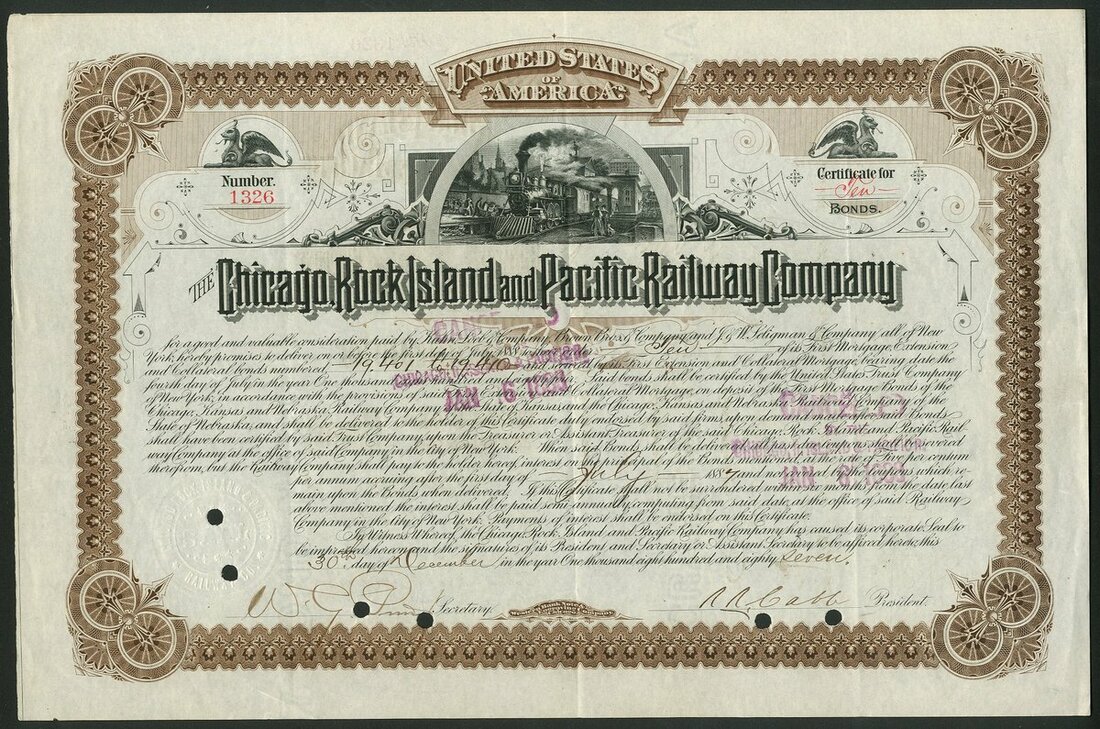 UNITED STATES
OF
AMERICA
Number.
1326
Certificate for
Ten
BONDS.
THE Chicago, Rock Island and Pacific Railway Company
for a good and valuable consideration paid by Kuhn Loeb & Company, Brown Bros & Company and J. & W. Seligman & Company all of New
York, hereby promises to deliver, on or before the first day of July to order Ten of its First Mortgage, Extension
and Collateral bonds numbered and secured by its first Extension and Collateral Mortgage, bearing date the
fourth day of July in the year One thousand eight hundred and eighty Said bonds shall be certified by the United States Trust Company
of New York, in accordance with the provisions of said and Collateral Mortgage, on deposit of the First Mortgage Bonds of the
Chicago, Kansas and Nebraska, Railway Company State of Kansas and the Chicago, Kansas and Nebraska, Railway Company of the
State of Nebraska, and shall be delivered to the holder of this Certificate duly endorsed by said firms, upon demand had after said Bonds
shall have been certified by said Trust Company, upon the Treasurer or Assistant Treasurer of the said Chicago, Rock Island and Pacific Rail
way Company at the office of said Company in the City of New York. When said Bonds shall be delivered all past due coupons shall be severed
therefrom, but the Railway Company shall pay to the holder hereof, interest on the principal of the Bonds mentioned, at the rate of five per centum
per annum accruing after the first day of July 1887 and not covered by the Coupons which re-
main upon the Bonds when delivered. If this Certificate shall not be surrendered within six months from the date last
above mentioned the interest shall be paid semi-annually, computing from said date, at the office of said Railway
Company in the City of New York. Payments of interest shall be endorsed on this Certificate.
In Witness Whereof, the Chicago, Rock Island and Pacific Railway Company has caused its corporate Seal to
be impressed hereon and the signatures of its President and Secretary or Assistant Secretary to be affixed hereto, this
30th day of December in the year One thousand eight hundred and eighty seven.
JAN 6 1888
JAN 6 1888
Secretary.
R. R. Cable President.